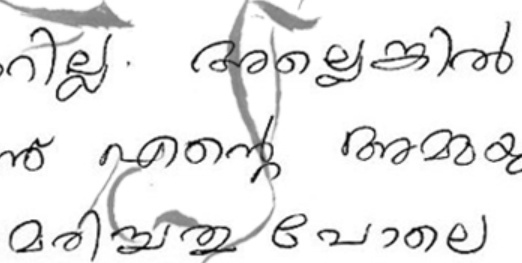 റില്ല. അല്ലെങ്കിൽ
ന്ന് എന്റെ അമ്മയു
മരിച്ചതു പോലെ